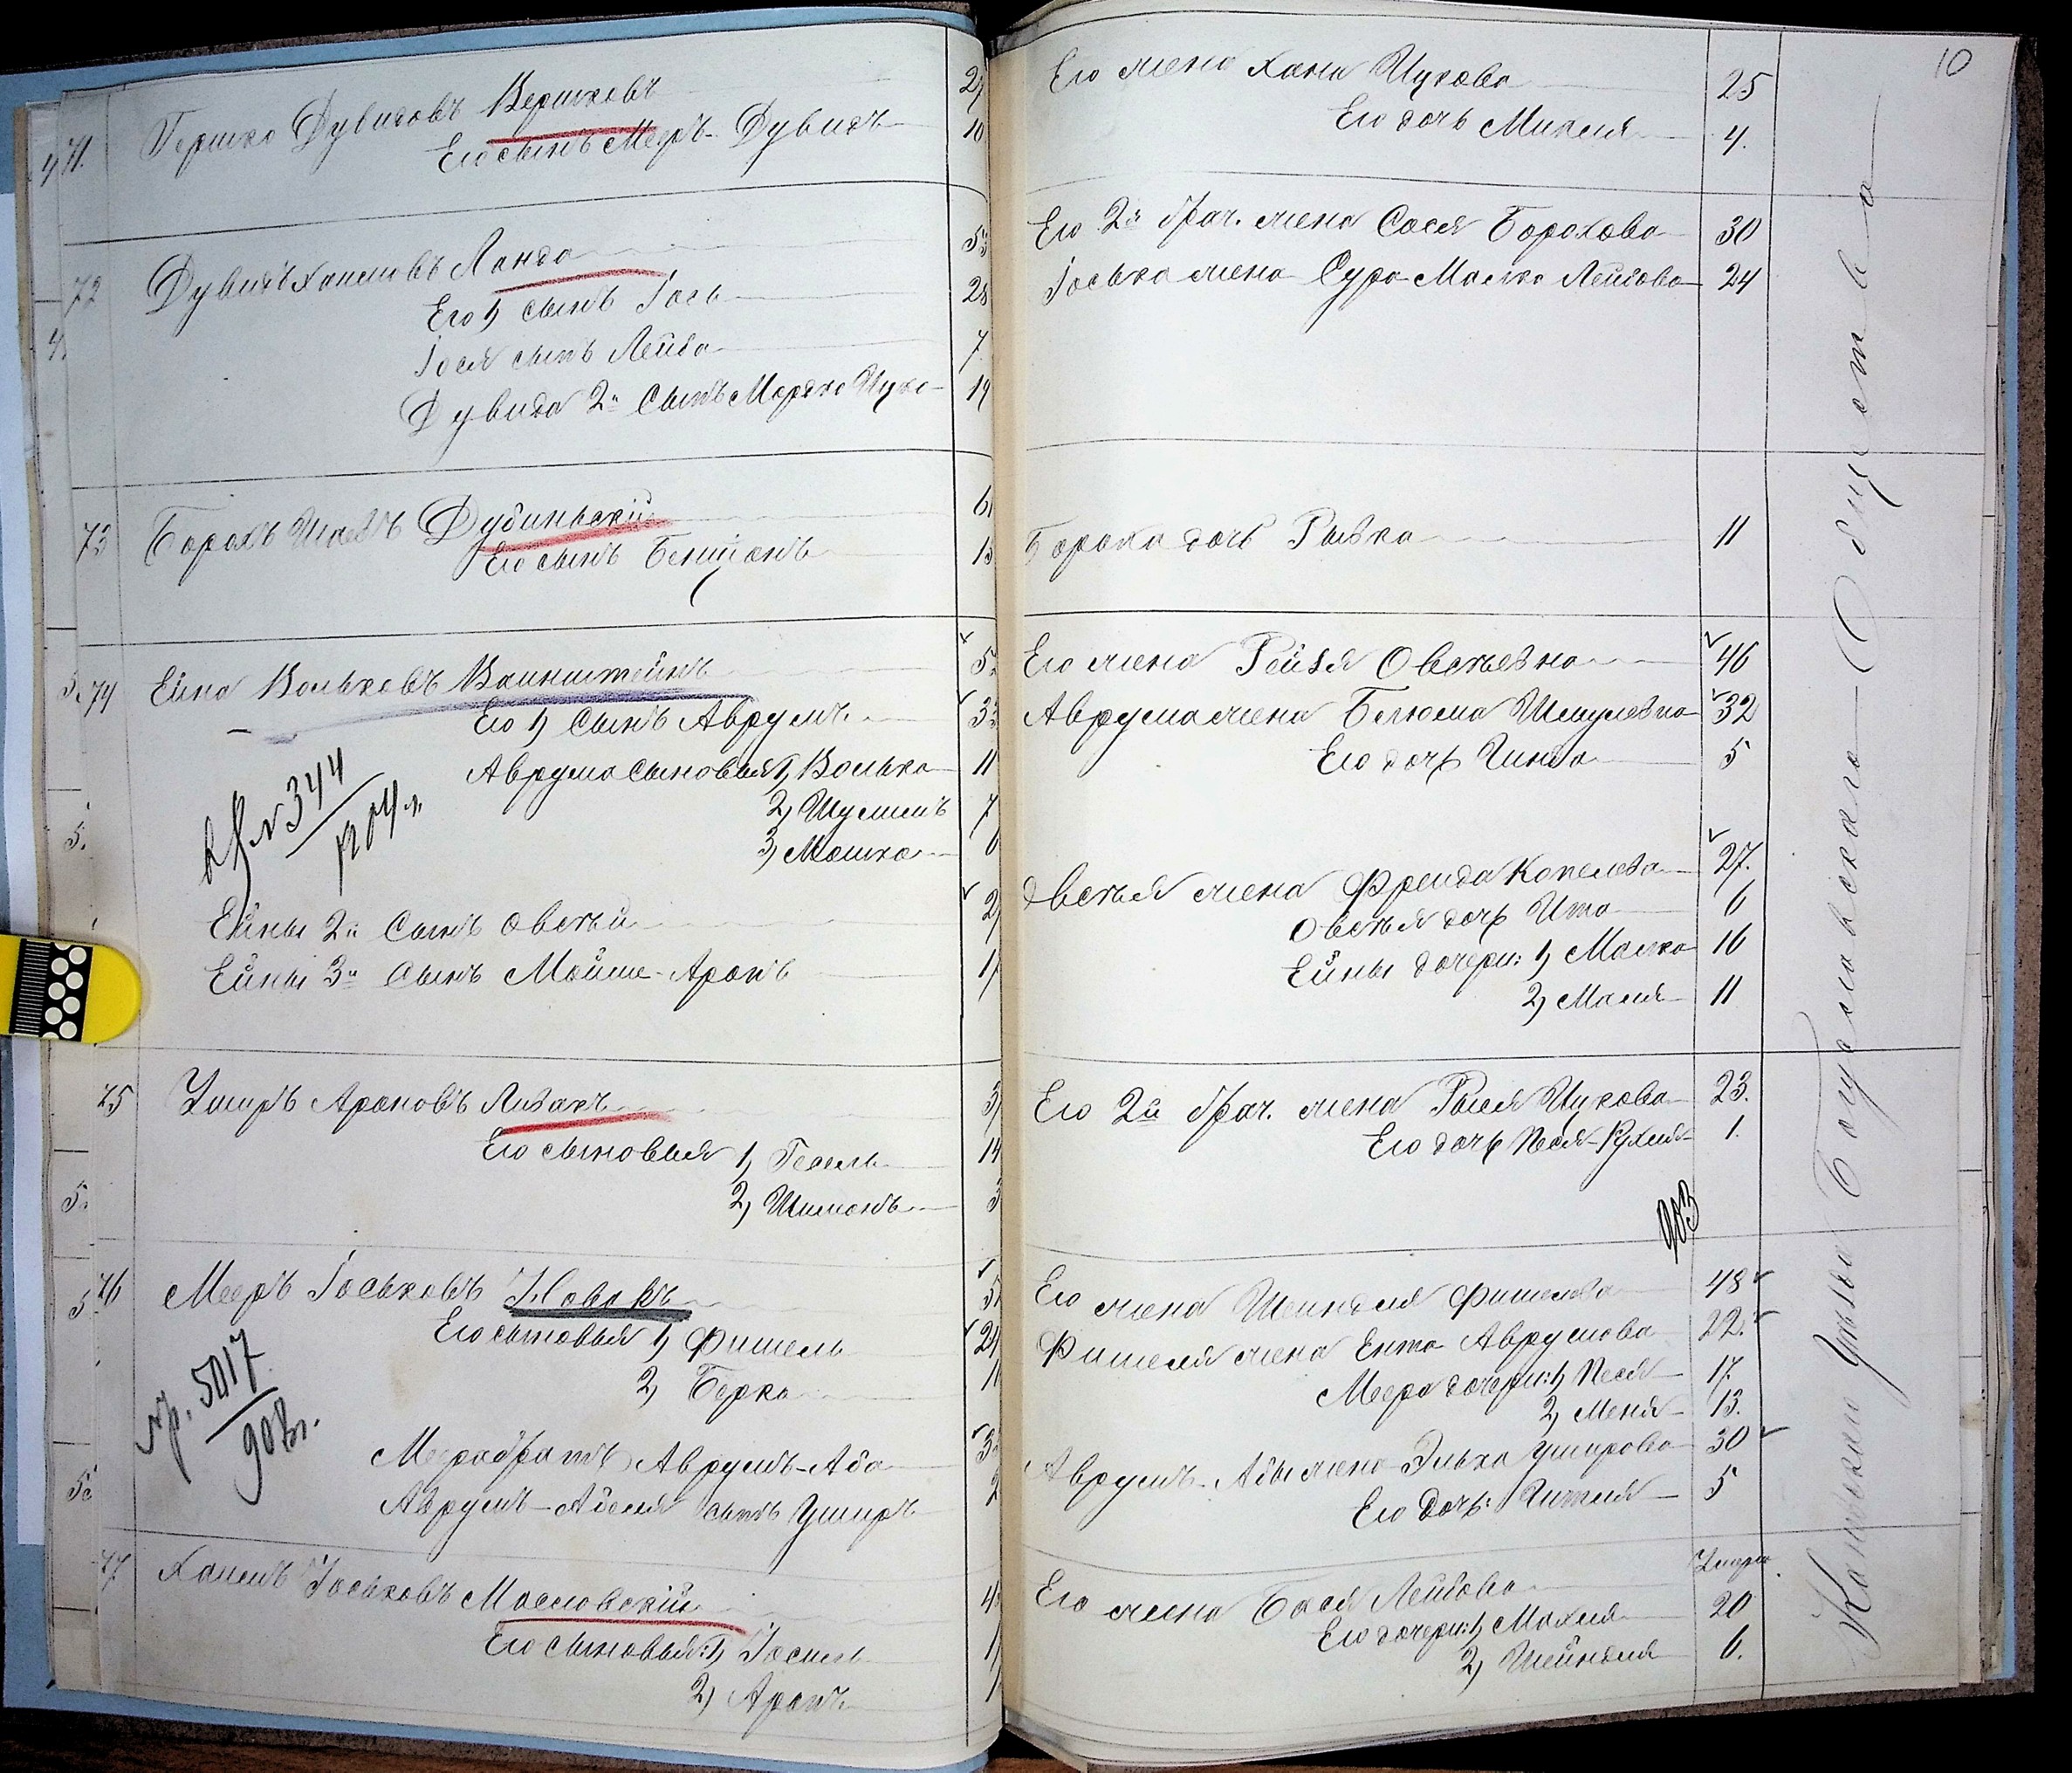 71. Гершко Дувидовъ Вершковъ 2
Его сынъ Меръ-Дувидъ 10
72 Дувидъ Хаимовъ Ланда 5
Его 1, сынъ Іось 28
Іося сынъ Лейба 7
Дувида 2й Сынъ Мордко Ицко 19
73 Борохъ Дубиньскій 6
Его сынъ Бенціонъ 1
74 Ейна Вольковъ Ваинштейнъ 5
Его 1, Сынъ Аврумъ 3
Аврума сыновья 1, Волько 11
2, Шулимъ 7
3, Мошко 6
№ 344
904 г.
Ейны 2й Сынъ Овсѣй 2
Ейны 3й Сынъ Мойше-Аронъ 1
75 Ушеръ Ароновъ Лизакъ 3
Его сыновья 1, Гесель 14
2, Шимонъ 3
76 Мееръ Іоськовъ Новакъ 5
Его сыновья 1, Фишель 21
2, Берко 1
пр. 5017
908 г.
Меера братъ Аврумъ-Аба 3
Аврумъ-Абеля сынъ Ушеръ 2
77 Хаимъ Іоськовъ Масловскій 4
Его сыновья: 1, Іосиль 1
2, Аронъ 1
10
Его жена Хана Ицкова 25
Его дочь Миполя 4.
Его 2й брач. жена Сося Борохова 30
Іоська жена Сура-Малка Лейбова 24
Бороха дочь Рывка 11
Его жена Рейзя Овсѣевна 46
Аврума жена Белюма Шмулевна 32
Его дочь Гинда 5
Овсѣя жена Фрейда Копелева 27.
Овсѣя дочь Ита 6
Ейны дочери: 1, Малка 16
2, Маля 11
Его 2й брач. жена Рыся Ицкова 23.
Его дочь Песя-Рухля 1.
903
Его жена Шейндля Фишелева 48
Фишеля жена Ента Аврумова 22.
Меера дочери: 1, Песя 17.
2, Меня 13.
Аврумъ-Абы жена Элька Ушерова 30
Его Дочь: Гитля 5
Его жена Бася Лейбова Умерла
Его дочери: 1, Махля 20
2, Шейндля 6.
Каневскаго уѣзда Богуславскаго Общества